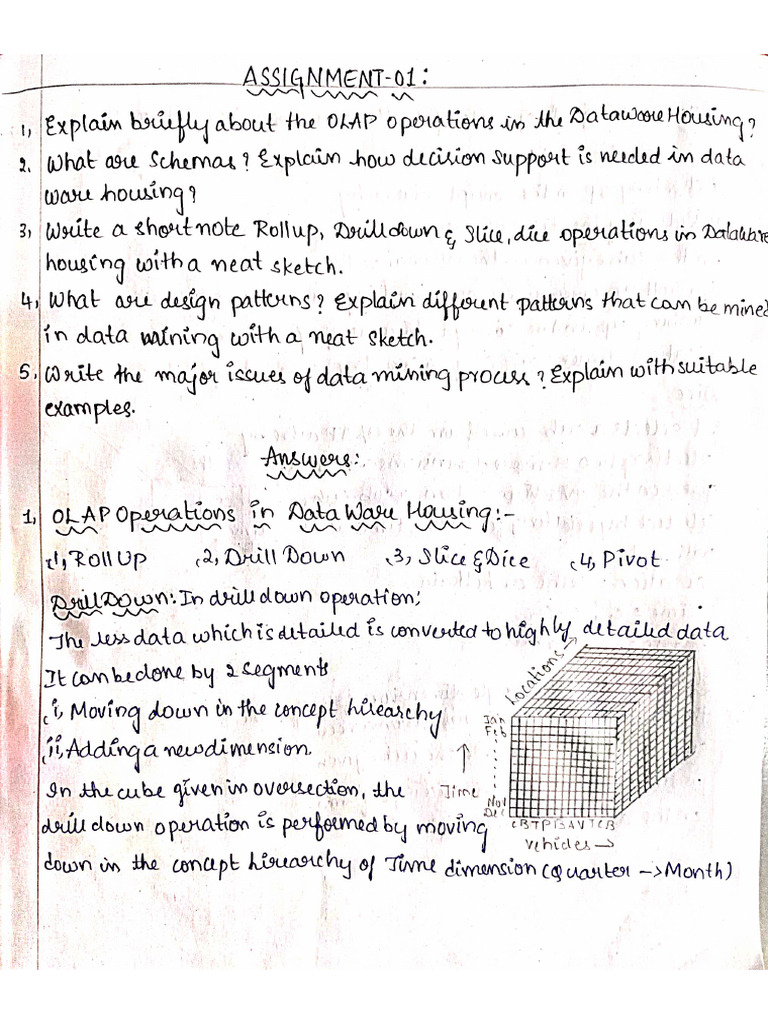 ASSIGNMENT-01:
1, Explain briefly about the OLAP operations in the DatawareHousing?
2. What are Schemas? Explain how decision support is needed in data
ware housing?
3, Write a short note Rollup, Drilldown & Slice, dice operations in Dataware
housing with a neat sketch.
4, What are design patterns? Explain different patterns that can be mined
in data mining with a neat sketch.
5. Write the major issues of data mining process? Explain with suitable
examples.
Answers:
1, OLAP Operations in Data Ware Housing:-
1, Roll Up 2, Drill Down 3, Slice & Dice 4, Pivot
Drill Down: In drill down operation;
The less data which is detailed is converted to highly detailed data
It can be done by 2 segments
i, Moving down in the concept hirearchy
ii, Adding a new dimension.
In the cube given in oversection, the
drill down operation is performed by moving
down in the concept hirearchy of Time dimension (Quarter -> Month)
Locations →
Jan
Feb
Time
Nov
Dec
CBTPBAVTCB
Vehicles →